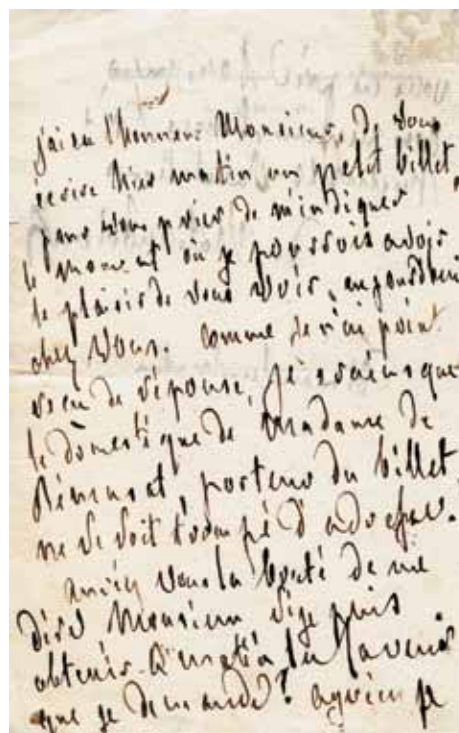 j'ai eu l'honneur Monsieur, de vous
écrire hier matin un petit billet,
pour vous prier de m'indiquer
le moment où je pourrois avoir
le plaisir de vous voir, aujourd'hui
chez vous. comme je n'ai point
reçu de réponse, je crains que
le domestique de Madame de
Rémusat, porteur du billet,
ne se soit trompé d'adresse.
auriez vous la bonté de me
dire Monsieur si je puis
obtenir ce matin la faveur
que je demande? agréez je